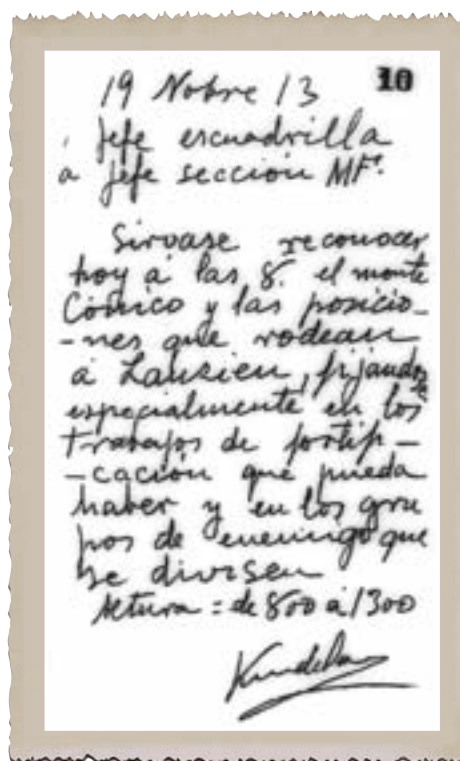 10
19 Nobre 13
Jefe escuadrilla
a Jefe sección MFº.
Sirvase reconocer
hoy á las 8. el monte
Cónico y las posicio-
-nes que rodean
á Lauzien, fijandose
especialmente en los
trabajos de fortifi-
-cación que pueda
haber y en los gru
pos de enemigo que
se divisen
Altura = de 800 á 1300
Kindelan